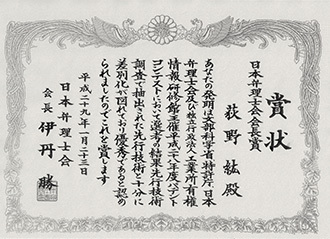 賞状
日本弁理士会会長賞
荻野紘殿
あなたの発明は文部科学省特許庁日本
弁理士会及び独立行政法人工業所有権
情報研修館主催平成二十八年度パテント
コンテストにおいて選考の結果先行技術
調査で抽出された先行技術と十分に
差別化が図れており優秀であると認め
られましたのでこれを賞します
平成二十九年一月二十三日
日本弁理士会
会長 伊丹勝